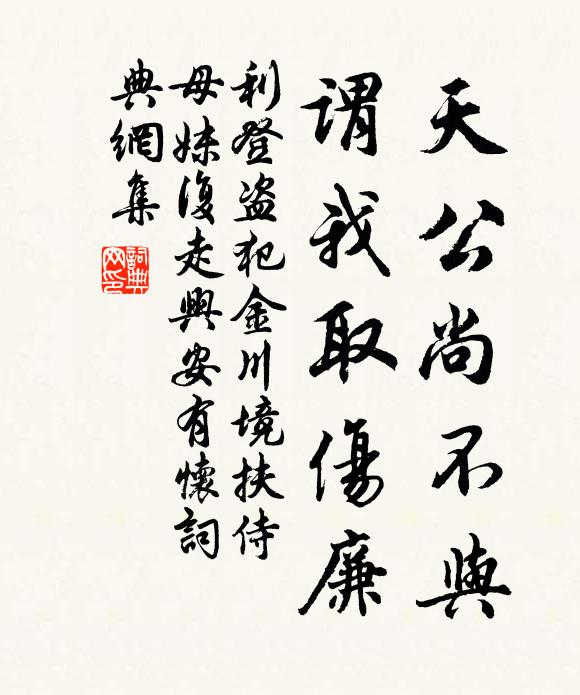 天公尚不與
謂我取傷廉
利登盜犯金川境扶侍
母妹復走興安有懷詞
典網集
詞典網印